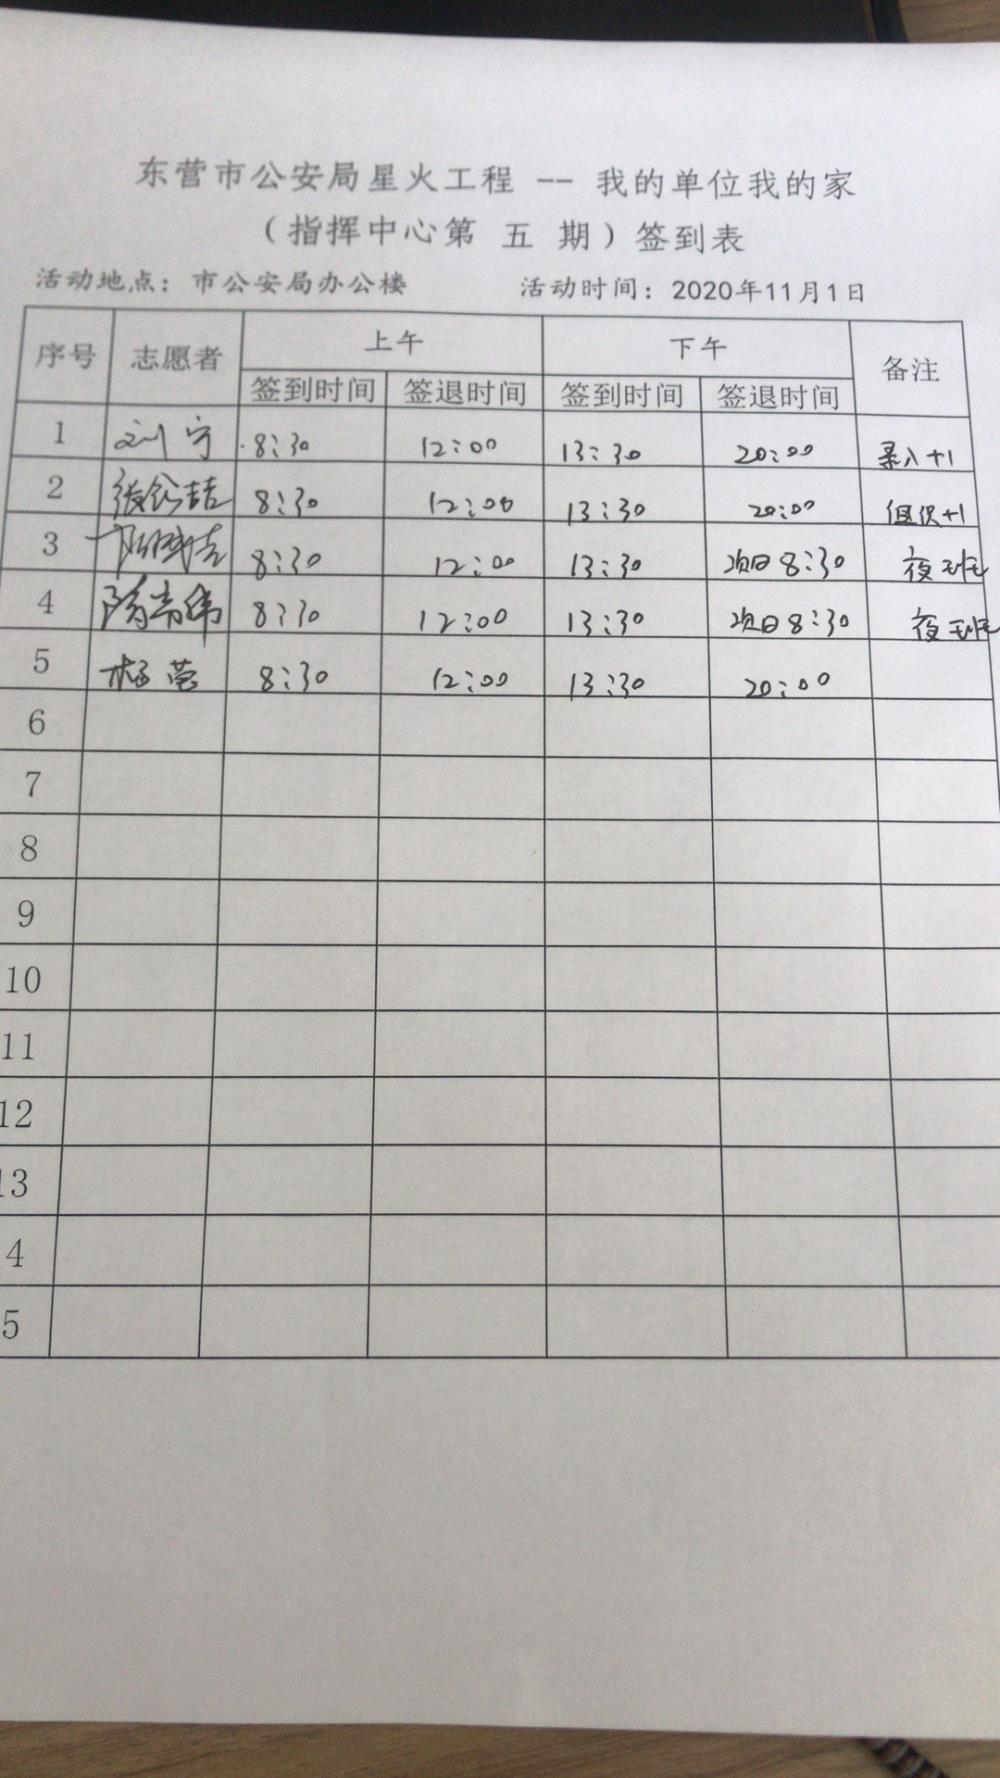 东营市公安局星火工程 -- 我的单位我的家
（指挥中心第 五 期）签到表
活动地点：市公安局办公楼 活动时间：2020年11月1日
序号 志愿者 上午 下午 备注
签到时间 签退时间 签到时间 签退时间
1 刘宁 8:30 12:00 13:30 20:00 录入+1
2 8:30 12:00 13:30 20:00 组织+1
3 8:30 12:00 13:30 次日8:30 夜班
4 8:30 12:00 13:30 次日8:30 夜班
5 杨莹 8:30 12:00 13:30 20:00
6
7
8
9
10
11
12
13
4
5